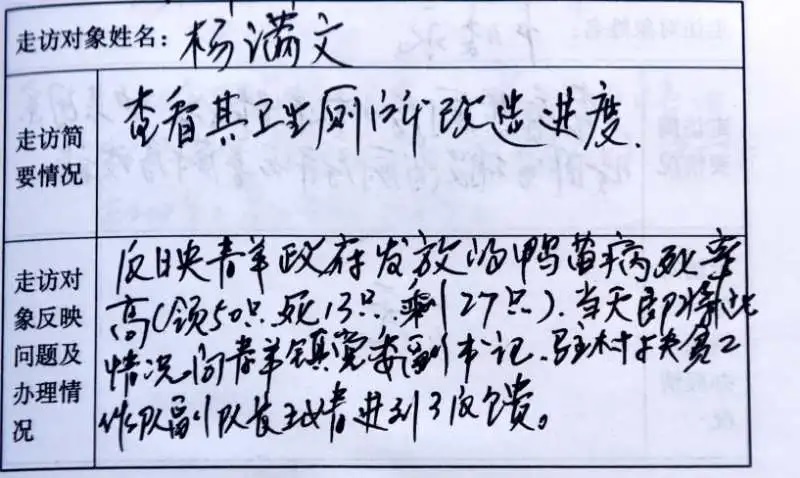 走访对象姓名：杨满文
走访简
要情况
查看其卫生厕所改造进度.
走访对
象反映
问题及
办理情
况
反映青羊政府发放的鸭苗病死率
高(领50只死13只剩27只).当天即将此
情况向青羊镇党委副书记、驻村扶贫工
作队副队长王晓青进行了反馈。